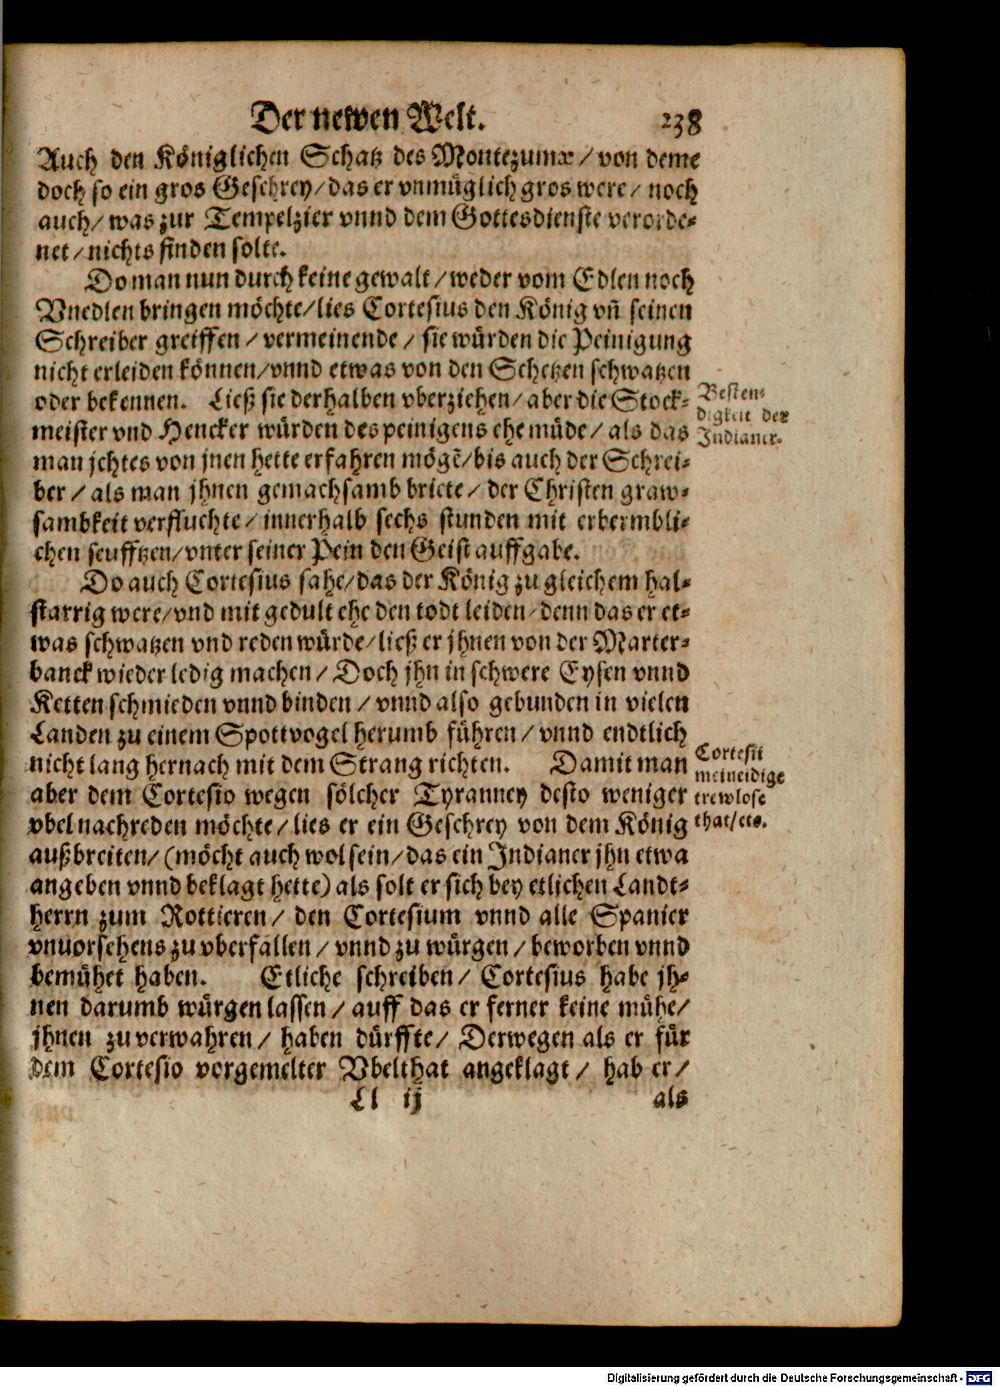 Der newen Welt. 238
Auch den Königlichen Schatz des Montezumæ / von deme
doch so ein gros Geschrey / das er vnmüglich gros were / noch
auch / was zur Tempelzier vnnd dem Gottesdienste verorde-
net / nichts finden solte.
Do man nun durch keine gewalt / weder vom Edlen noch
Vnedlen bringen möchte / lies Cortesius den König vñ seinen
Schreiber greiffen / vermeinende / sie würden die Peinigung
nicht erleiden können / vnnd etwas von den Schetzen schwatzen
oder bekennen. Ließ sie derhalben vberziehen / aber die Stock-
meister vnd Hencker würden des peinigens ehe müde / als das
man jchtes von jnen hette erfahren mögẽ / bis auch der Schrei-
ber / als man jhnen gemachsamb briete / der Christen graw-
sambkeit verfluchte / innerhalb sechs stunden mit erbermbli-
chen seufftzen / vnter seiner Pein den Geist auffgabe.
Besten-
digkeit der
Indianer.
Do auch Cortesius sahe / das der König zu gleichem hal-
starrig were / vnd mit gedult ehe den todt leiden / denn das er et-
was schwatzen vnd reden würde / ließ er jhnen von der Marter-
banck wieder ledig machen / Doch jhn in schwere Eysen vnnd
Ketten schmieden vnnd binden / vnnd also gebunden in vielen
Landen zu einem Spottvogel herumb führen / vnnd endtlich
nicht lang hernach mit dem Strang richten. Damit man
aber dem Cortesio wegen sölcher Tyranney desto weniger
vbel nachreden möchte / lies er ein Geschrey von dem König
außbreiten / (möcht auch wol sein / das ein Indianer jhn etwa
angeben vnnd beklagt hette) als solt er sich bey etlichen Landt-
herrn zum Rottieren / den Cortesium vnnd alle Spanier
vnuorsehens zu vberfallen / vnnd zu würgen / beworben vnnd
bemühet haben. Etliche schreiben / Cortesius habe jh-
nen darumb würgen lassen / auff das er ferner keine mühe /
jhnen zu verwahren / haben dürffte / Derwegen als er für
dem Cortesio vorgemelter Vbelthat angeklagt / hab er /
Cortesii
meineidige
trewlose
that / etc.
Ll ij als
Digitalisierung gefördert durch die Deutsche Forschungsgemeinschaft - DFG